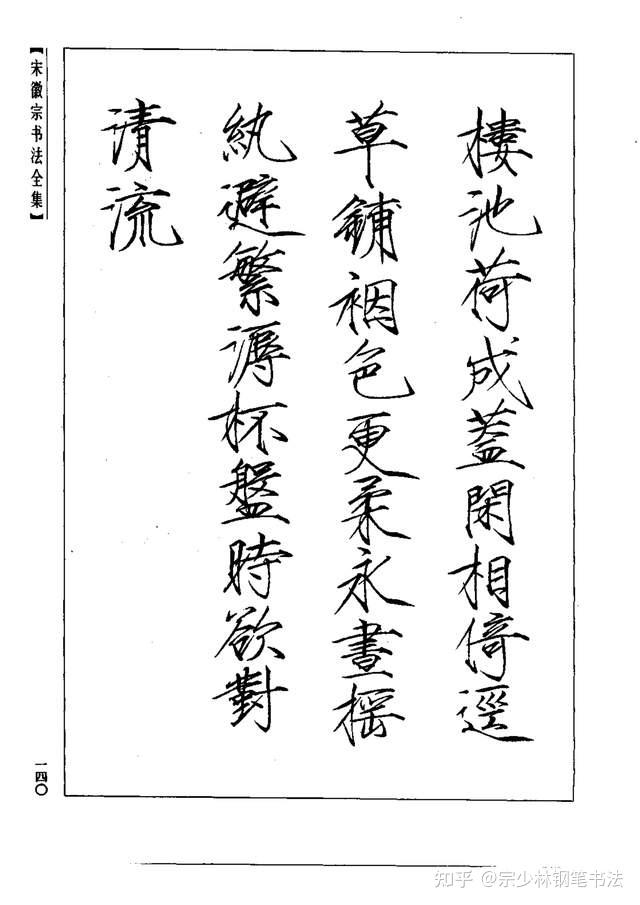 樓池荷成蓋閑相倚逕
草鋪裀色更柔永晝搖
紈避繁溽杯盤時欲對
清流
【宋徽宗书法全集】
一四〇
知乎 @宗少林钢笔书法